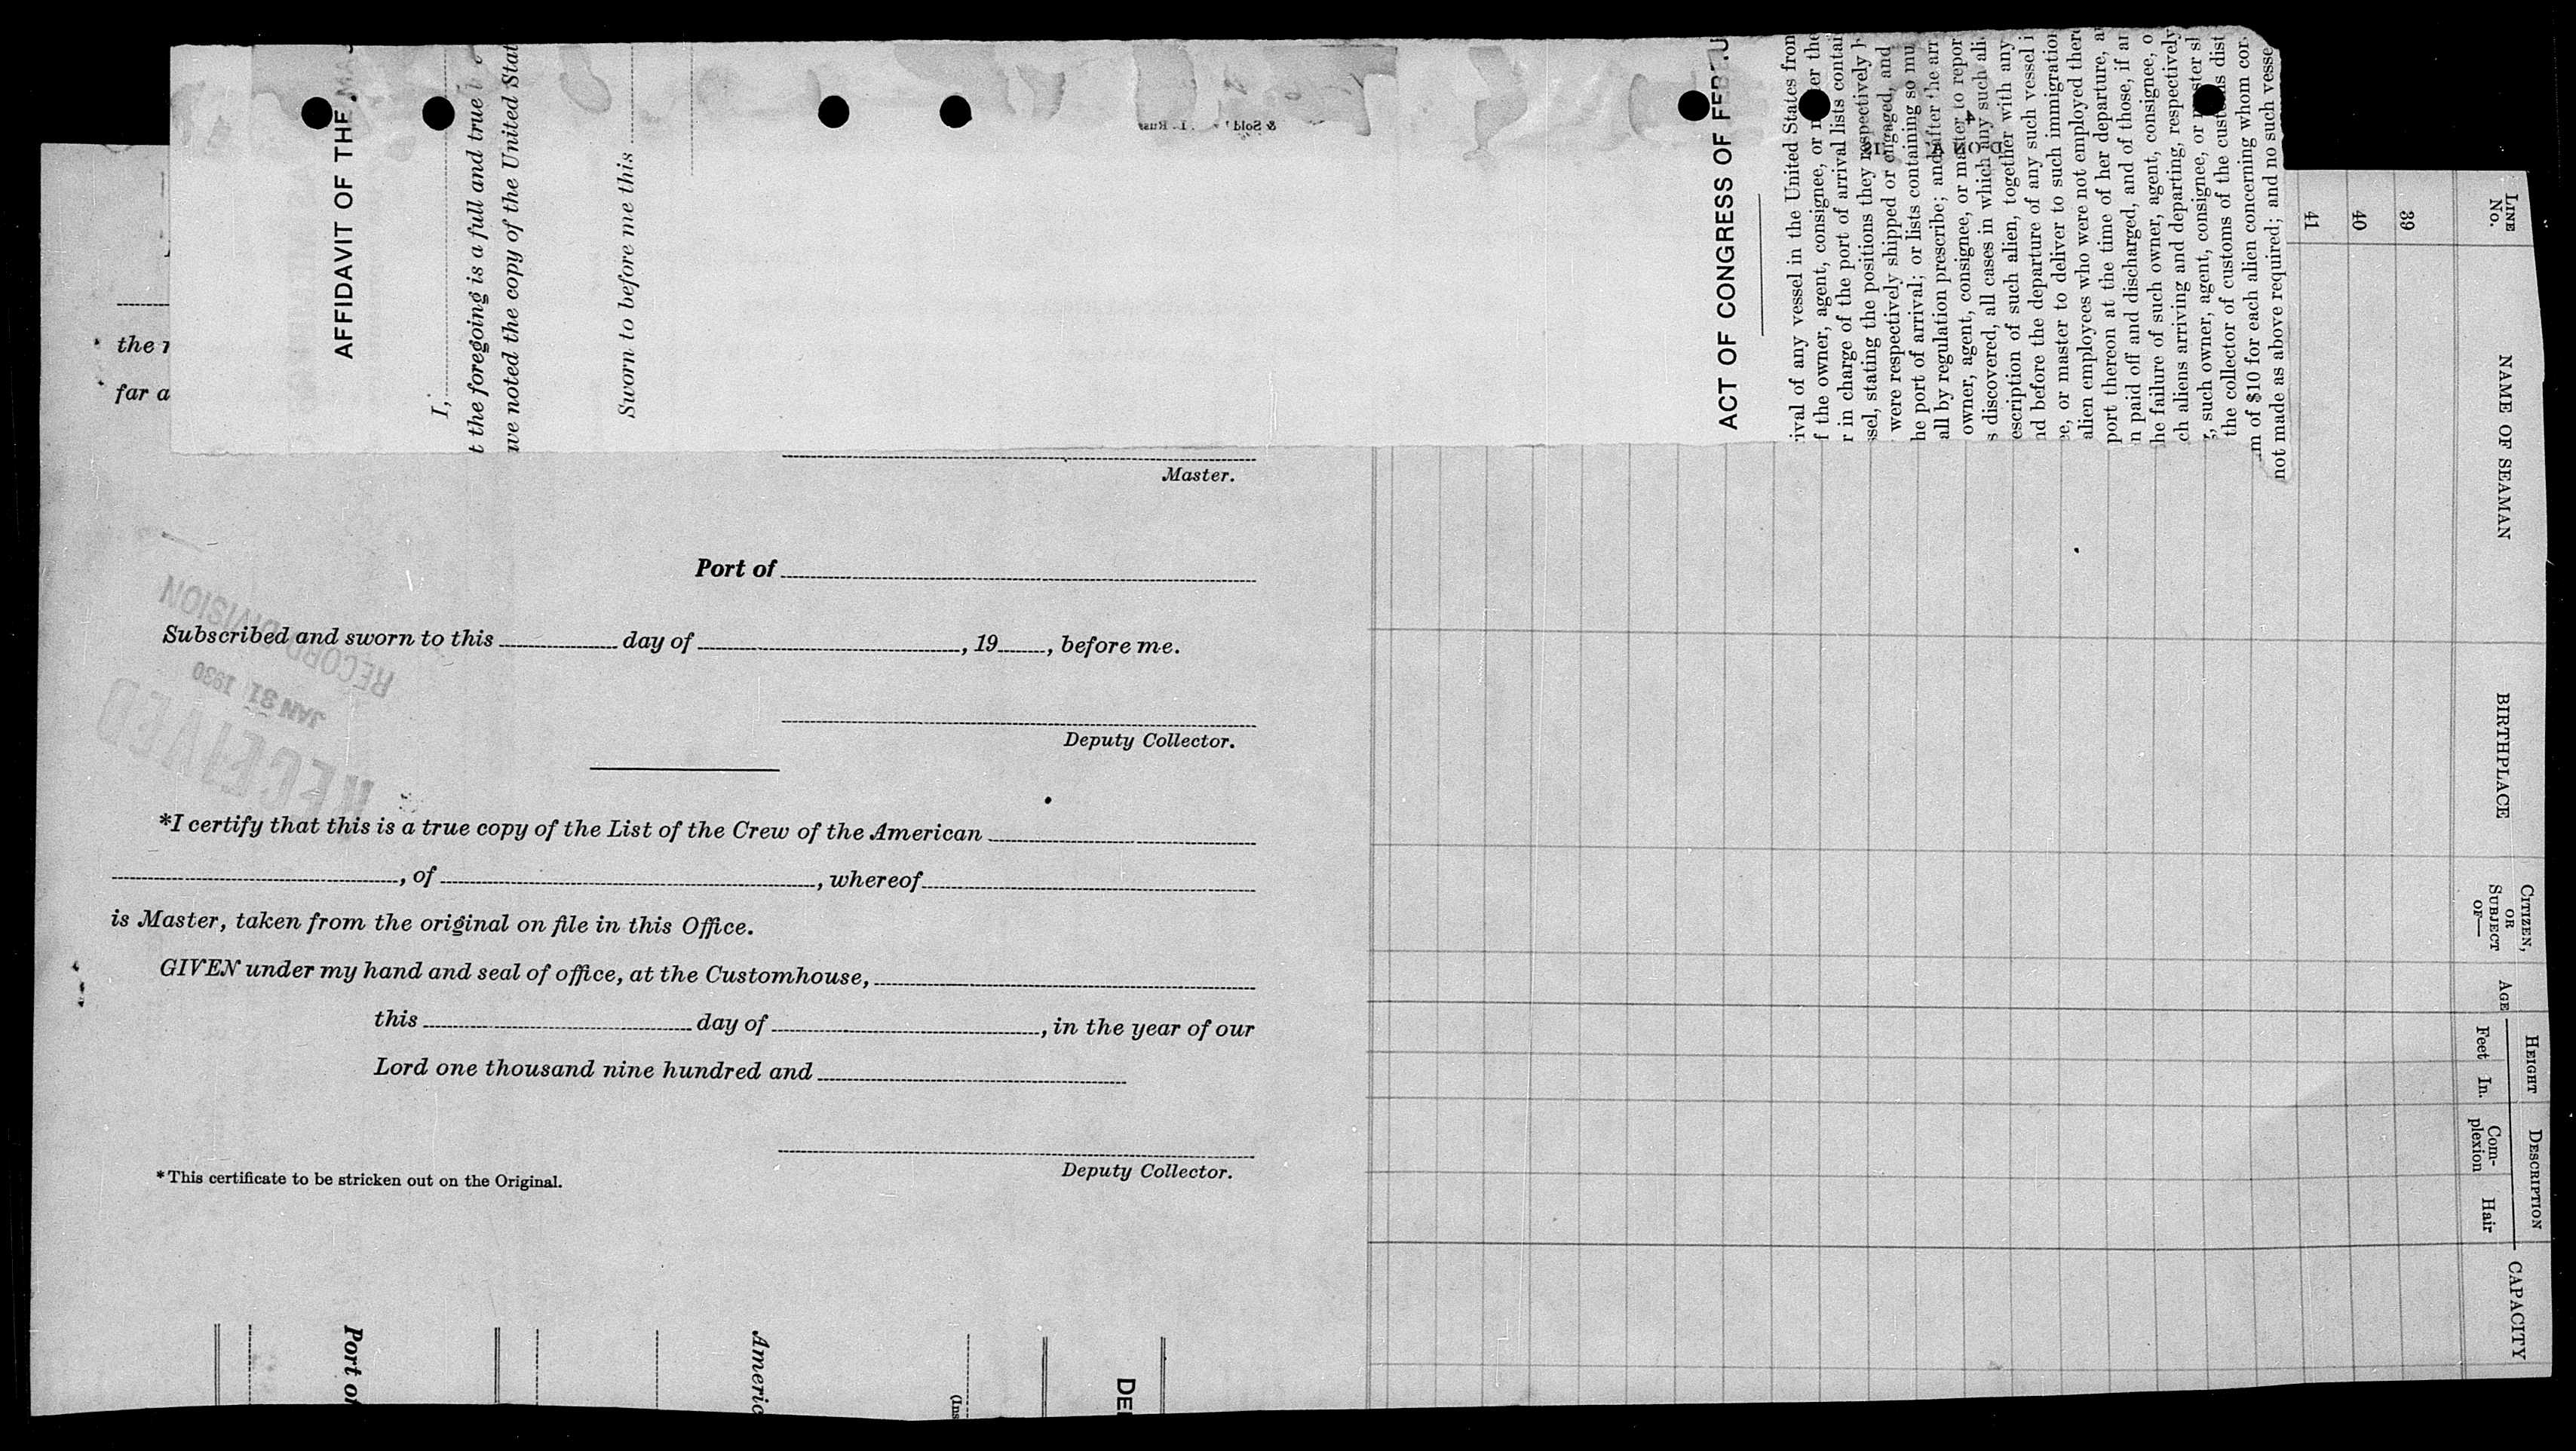 AFFIDAVIT OF THE
I,
t the foregoing is a full and true
we noted the copy of the United Stat
Sworn to before me this
ACT OF CONGRESS OF FEB
ival of any vessel in the United States from
f the owner, agent, consignee, or er the
r in charge of the port of arrival lists contai
sel, stating the positions they respectively
were respectively shipped or engaged, and
he port of arrival; or lists containing so mu
all by regulation prescribe; and after the arr
owner, agent, consignee, or master to repor
s discovered, all cases in which any such ali
escription of such alien, together with any
nd before the departure of any such vessel i
ee, or master to deliver to such immigration
alien employees who were not employed there
port thereon at the time of her departure, a
n paid off and discharged, and of those, if a
he failure of such owner, agent, consignee, o
ch aliens arriving and departing, respectively
g, such owner, agent, consignee, or master sh
the collector of customs of the customs dist
m of $10 for each alien concerning whom cor
not made as above required; and no such vesse
the
far a
Master.
Port of
Subscribed and sworn to this day of , 19 , before me.
Deputy Collector.
RECEIVED
JAN 31 1930
RECORD DIVISION
*I certify that this is a true copy of the List of the Crew of the American
, of , whereof
is Master, taken from the original on file in this Office.
GIVEN under my hand and seal of office, at the Customhouse,
this day of , in the year of our
Lord one thousand nine hundred and
Deputy Collector.
*This certificate to be stricken out on the Original.
Port of
Americ
(Ins
DE
LINE No.
NAME OF SEAMAN
BIRTHPLACE
CITIZEN, OR SUBJECT OF—
AGE
HEIGHT
Feet In.
DESCRIPTION
Com-
plexion
Hair
CAPACITY
39
40
41